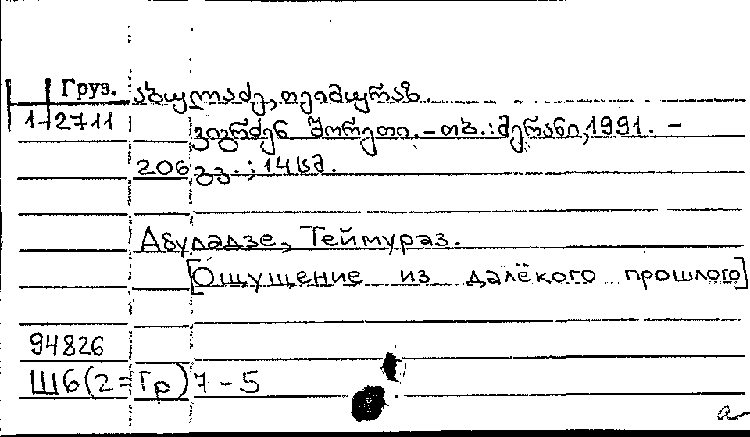 Груз. აბულაძე, თეიმურაზ.
1-2711
ვგრძენ შორეთი. – თბ. : მერანი, 1991. –
206 გვ. ; 14 სმ.
Абуладзе, Теймураз.
[Ощущение из далёкого прошлого]
94826
Ш6(2=Гр)7-5
а